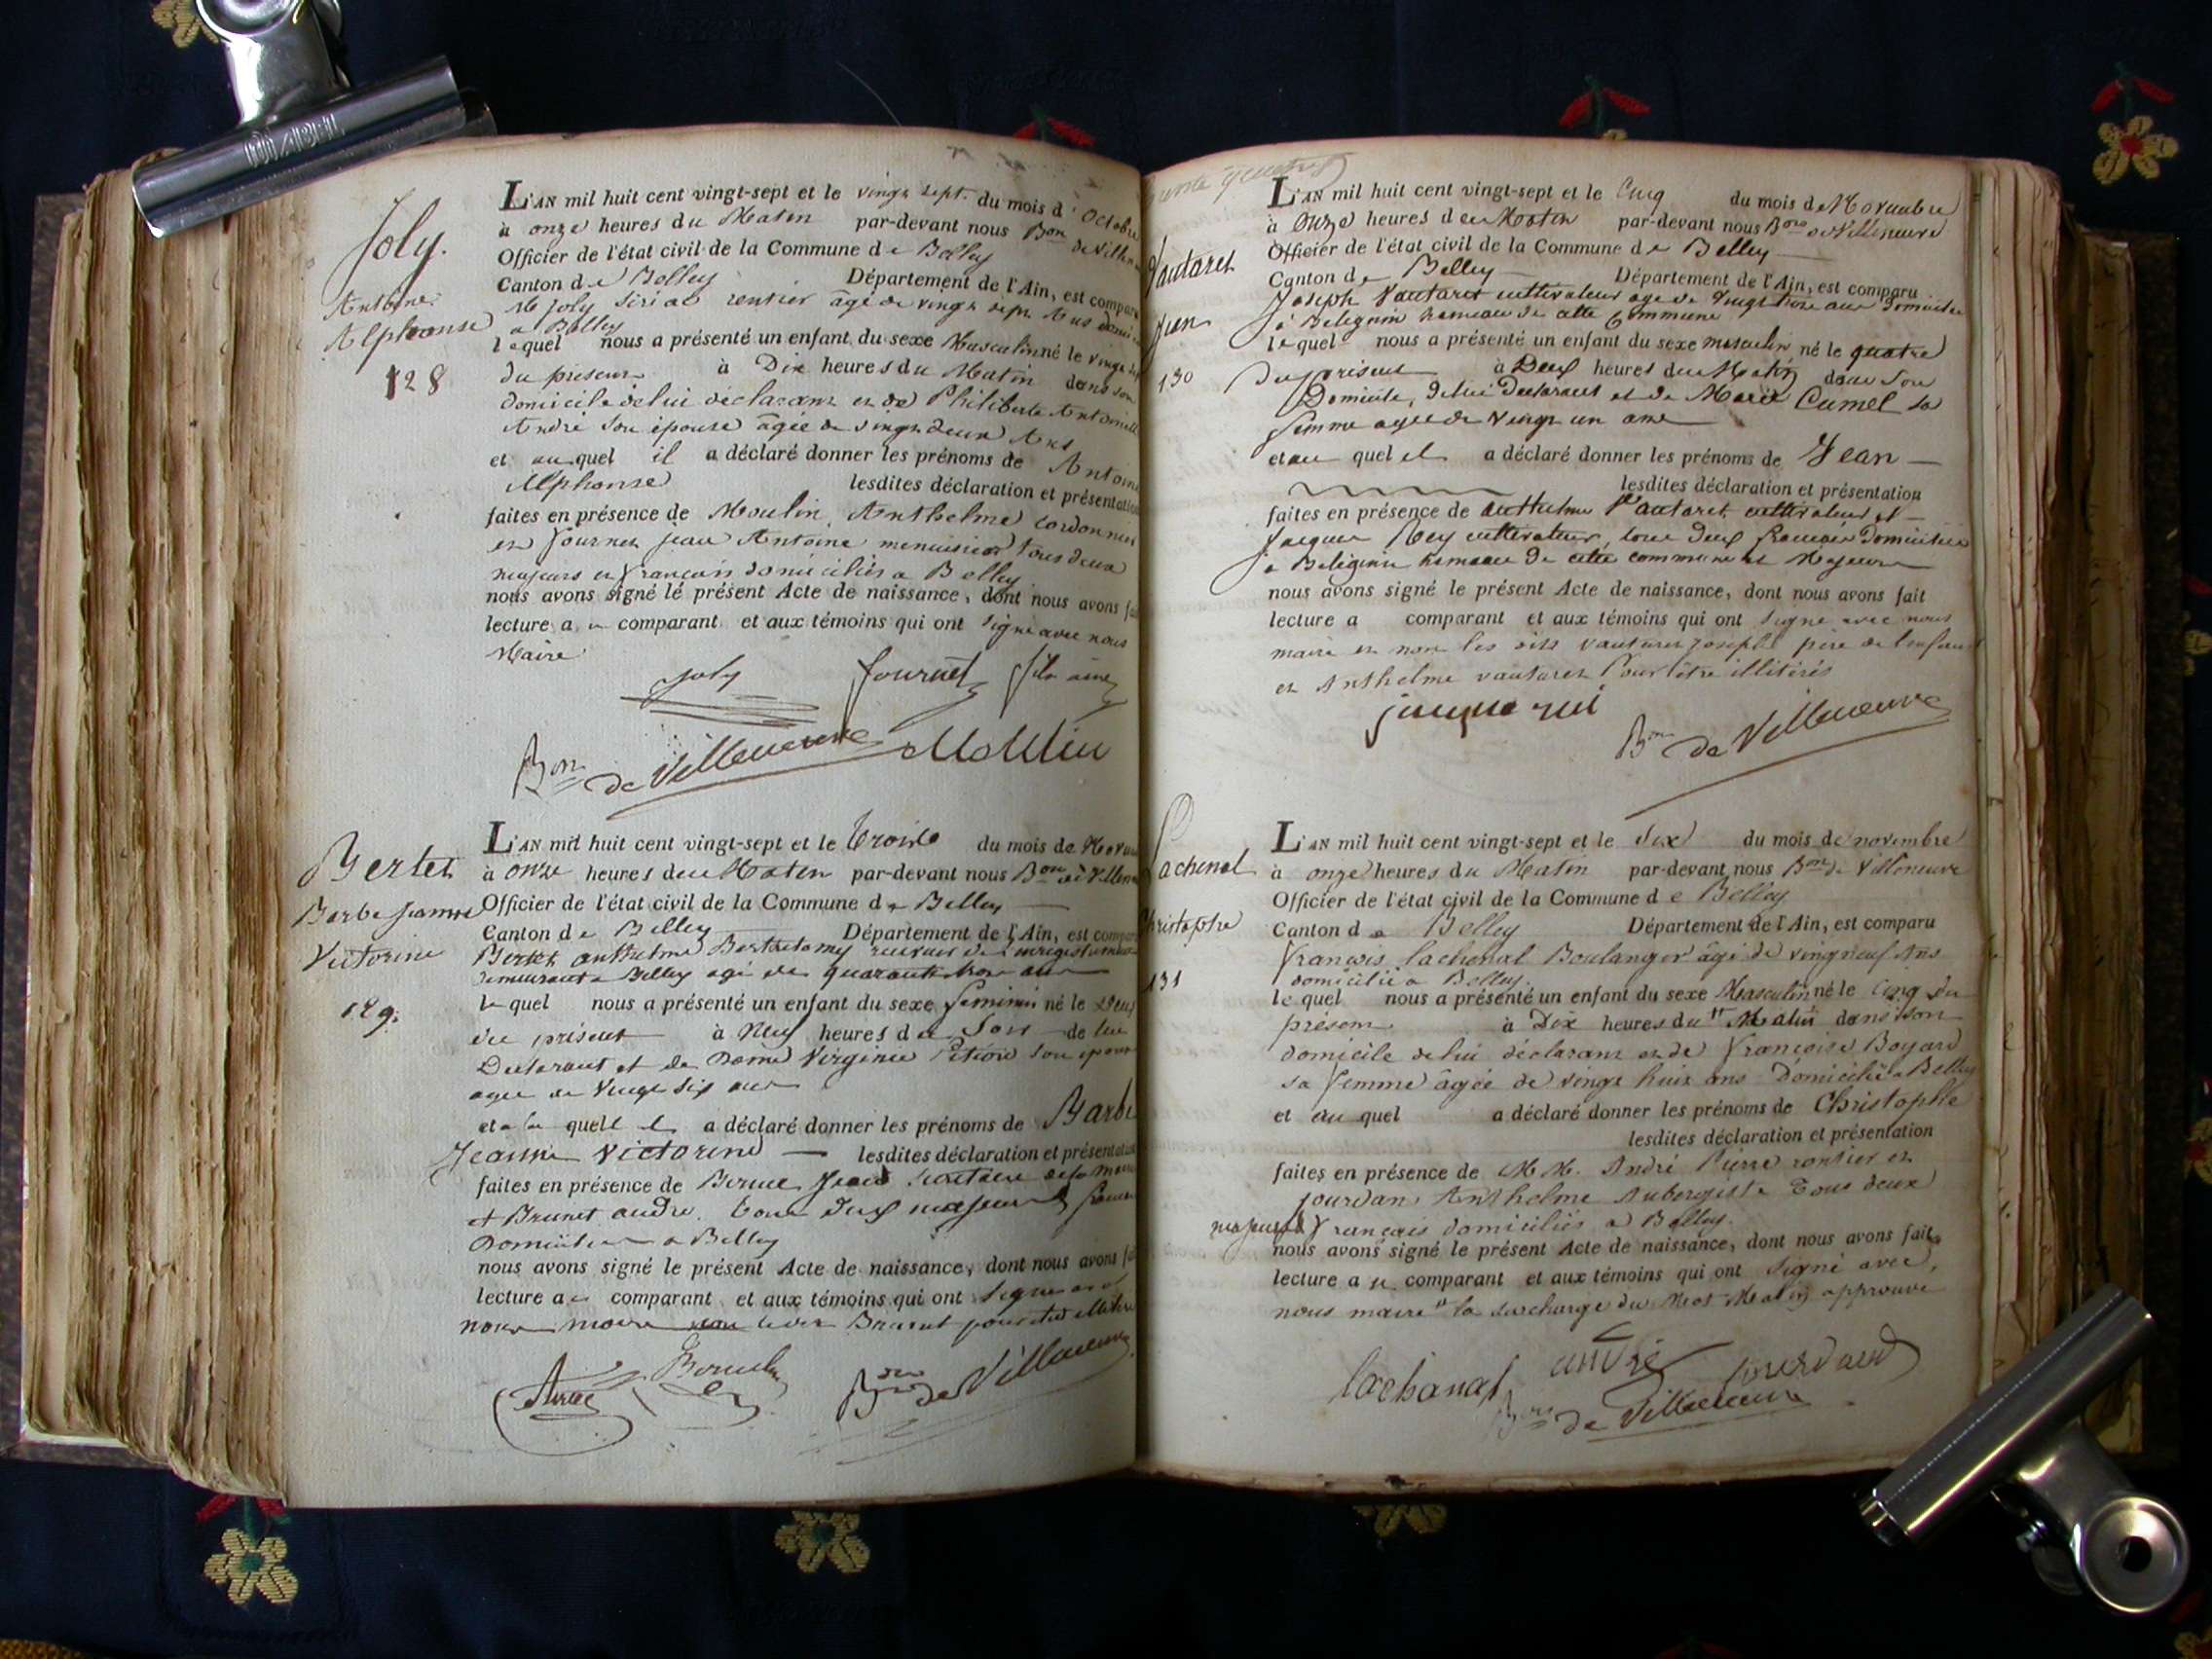 DIABEL
Joly.
Antoine
Alphonse
128
L'AN mil huit cent vingt-sept et le vingt sept du mois d'Octobre
à onze heures du Matin par-devant nous Bon de Ville
Officier de l'état civil de la Commune de Belley
Canton de Belley Département de l'Ain, est comparu
Mr Joly rentier âgé de vingt sept Ans
a Belley
lequel nous a présenté un enfant du sexe Masculin né le vingt sept
du présent à Dix heures du Matin dans son
domicile de lui déclarant et de Philiberte Antoinette
André son épouse âgée de vingt deux Ans
et auquel il a déclaré donner les prénoms de Antoine
Alphonse lesdites déclaration et présentation
faites en présence de Moulin Anthelme Cordonnier
et Fournet Jean Antoine menuisier tous deux
majeurs et français domiciliés a Belley
nous avons signé le présent Acte de naissance, dont nous avons fait
lecture au comparant et aux témoins qui ont signé avec nous
Maire
Joly Fournet fils ainé
Bon de Villeneuve Moulin
Bertet
Barbe Jeanne
Victorine
129.
L'AN mil huit cent vingt-sept et le trois du mois de Novem
à onze heures du Matin par-devant nous Bon de Villeneu
Officier de l'état civil de la Commune de Belley
Canton de Belley Département de l'Ain, est comparu
Bertet anthelme Barthelemy receveur de l'enregistrement
demeurant a Belley agé de quarante trois ans
lequel nous a présenté un enfant du sexe feminin né le Deux
du présent à Neuf heures du Soir de lui
Declarant et de Dame Virginie son épouse
agée de Vingt six ans
et a la quelle il a déclaré donner les prénoms de Barbe
Jeanne Victorine lesdites déclaration et présentation
faites en présence de Jean Secrétaire de la mairie
et Brunet andré tous Deux majeurs français
Domiciliés a Belley
nous avons signé le présent Acte de naissance, dont nous avons fait
lecture au comparant et aux témoins qui ont signé avec
nous maire non ledit Brunet pour être illitéré
Bon de Villeneuve
Vautaret
Jean
130
L'AN mil huit cent vingt-sept et le Cinq du mois de Novembre
à Onze heures du Matin par-devant nous Bon de Villeneuve
Officier de l'état civil de la Commune de Belley
Canton de Belley Département de l'Ain, est comparu
Joseph Vautaret cultivateur agé de Vingt trois ans Domicilié
à Belignin hameau de cette Commune
lequel nous a présenté un enfant du sexe masculin né le quatre
Du présent à Deux heures du Matin dans son
Domicile, de lui Declarant et de Marie Cumel sa
femme agée de Vingt un ans
et au quel il a déclaré donner les prénoms de Jean
lesdites déclaration et présentation
faites en présence de anthelme Vautaret cultivateur et
Jacques Rey cultivateur, tous Deux français Domiciliés
à Belignin hameau De cette commune et Majeurs
nous avons signé le présent Acte de naissance, dont nous avons fait
lecture a comparant et aux témoins qui ont signé avec nous
maire et non les dits Vautaret Joseph père de l'enfant
et Anthelme vautaret Pour être illitérés
Bon de Villeneuve
Lachenal
Christophe
131
L'AN mil huit cent vingt-sept et le Six du mois de novembre
à onze heures du Matin par-devant nous Bon de Villeneuve
Officier de l'état civil de la Commune de Belley
Canton de Belley Département de l'Ain, est comparu
François Lachenal Boulanger âgé de vingneuf Ans
domicilié a Belley.
lequel nous a présenté un enfant du sexe Masculin né le Cinq du
présent à Dix heures du Matin dans son
domicile de lui déclarant et de Françoise Boyard
sa femme âgée de vingt huit ans Domicilié a Belley
et au quel a déclaré donner les prénoms de Christophe
lesdites déclaration et présentation
faites en présence de M M. André Pierre rentier et
Jourdan Anthelme Aubergiste Tous deux
majeurs français domiciliés a Belley.
nous avons signé le présent Acte de naissance, dont nous avons fait
lecture au comparant et aux témoins qui ont signé avec
nous maire la surcharge du Mot Matin approuvé
lachanal andré Jourdand
Bon de Villeneuve